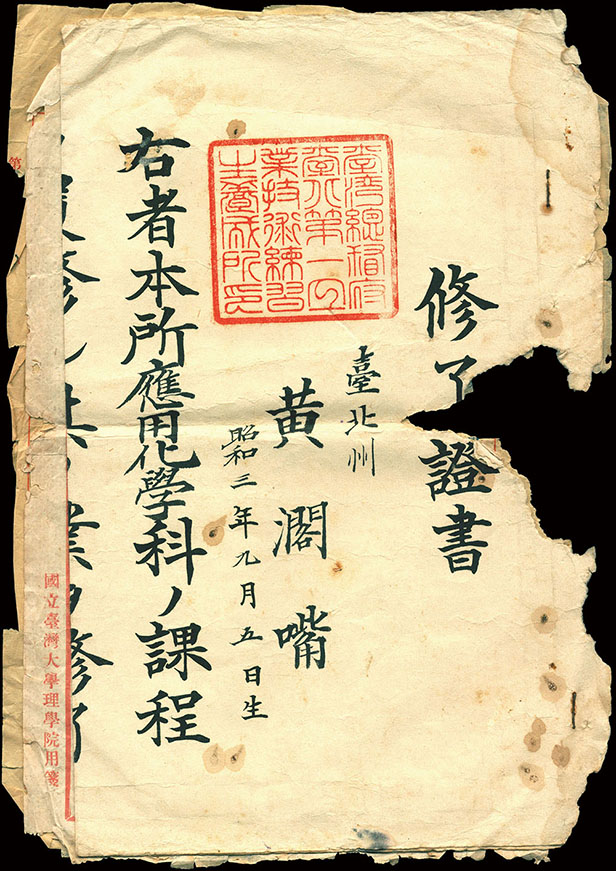 修了證書
臺灣總督府
臺北第一工
業技術練習
生養成所印
臺北州
黄濶嘴
昭和三年九月五日生
右者本所應用化學科ノ課程
履修シ其ノ業ヲ修了
國立臺灣大學理學院用箋
第